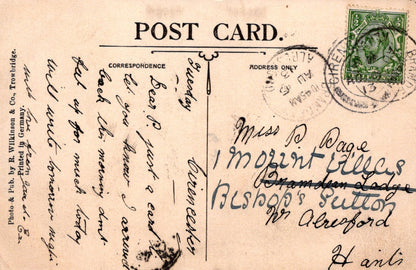 POST CARD.
CORRESPONDENCE
ADDRESS ONLY
Photo & Pub. by R. Wilkinson & Co., Trowbridge.
Printed in Germany.
Cirencester
Tuesday
Dear P. just a card to
let you know I arrived
back this morning dont
feel up for much today
will write tomorrow night
with love from
CIRENCESTER
ALRESFORD
AU 6
13
Miss P. Page
1 Mount Villas
Bramdean Lodge
Bishop's Sutton
Nr Alresford
Hants